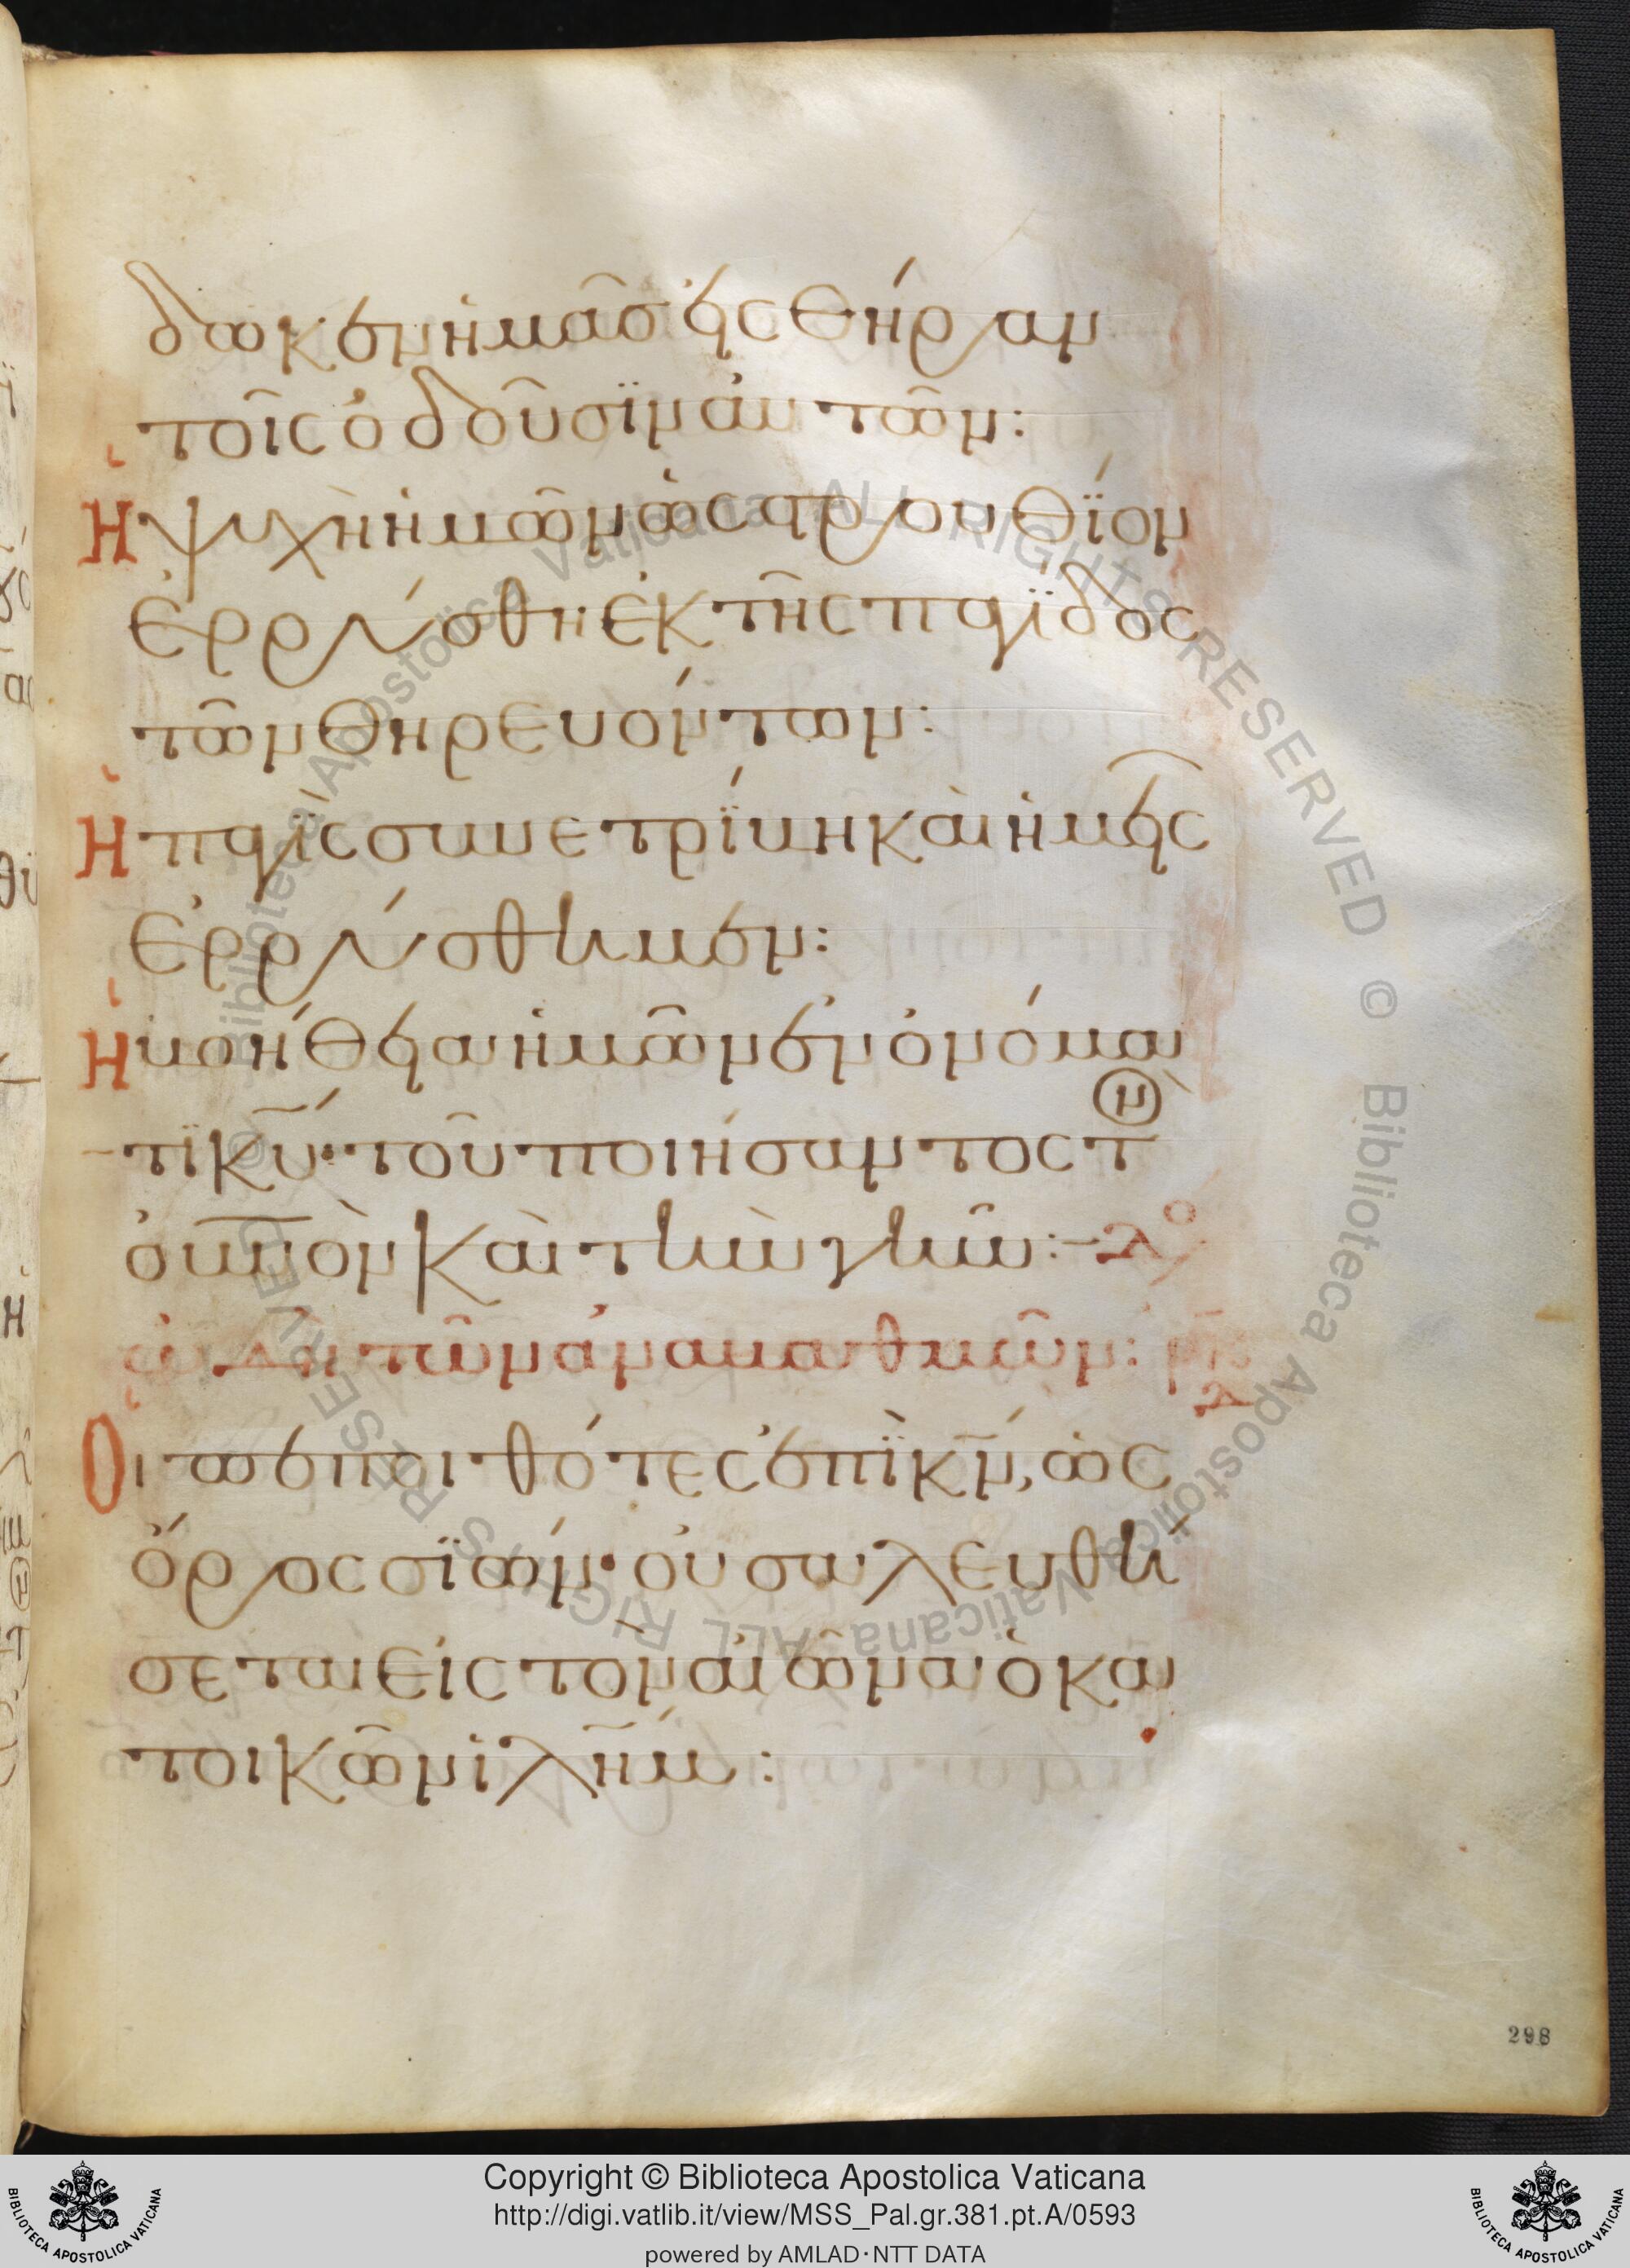 δωκεν ἡμᾶσ εἰς θήραν
τοῖς ὀδοῦσϊν αὐτῶν:
Ἡ ψυχὴ ἡμῶν ὡς στρουθΐον
ἐρρύσθη ἐκ τῆς παγΐδος
τῶν θηρευόντων:
Ἡ παγὶς συνετρΐβη καὶ ἡμεῖς
ἐρρύσθημεν:
Ἡ βοήθεια ἡμῶν ἐν ὀνόμα
τϊ κ̅υ̅· τοῦ ποιήσαντος τὸν
ο̅υ̅ν̅ὸν καὶ τὴν γῆν:- λο
ᾠδὴ τῶν ἀναβαθμῶν: ρκδ
Οἱ πεποιθότες ἐπὶ κ̅ν̅, ὡς
ὄρος σϊών· οὐ σαλευθή
σεται εἰς τὸν αἰῶνα ὁ κα
τοικῶν ἱλ̅η̅μ̅:
298
Copyright © Biblioteca Apostolica Vaticana
http://digi.vatlib.it/view/MSS_Pal.gr.381.pt.A/0593
powered by AMLAD·NTT DATA
BIBLIOTECA APOSTOLICA VATICANA
BIBLIOTECA APOSTOLICA VATICANA
© Biblioteca Apostolica Vaticana ALL RIGHTS RESERVED © Biblioteca Apostolica Vaticana ALL RIGHTS RESERVED